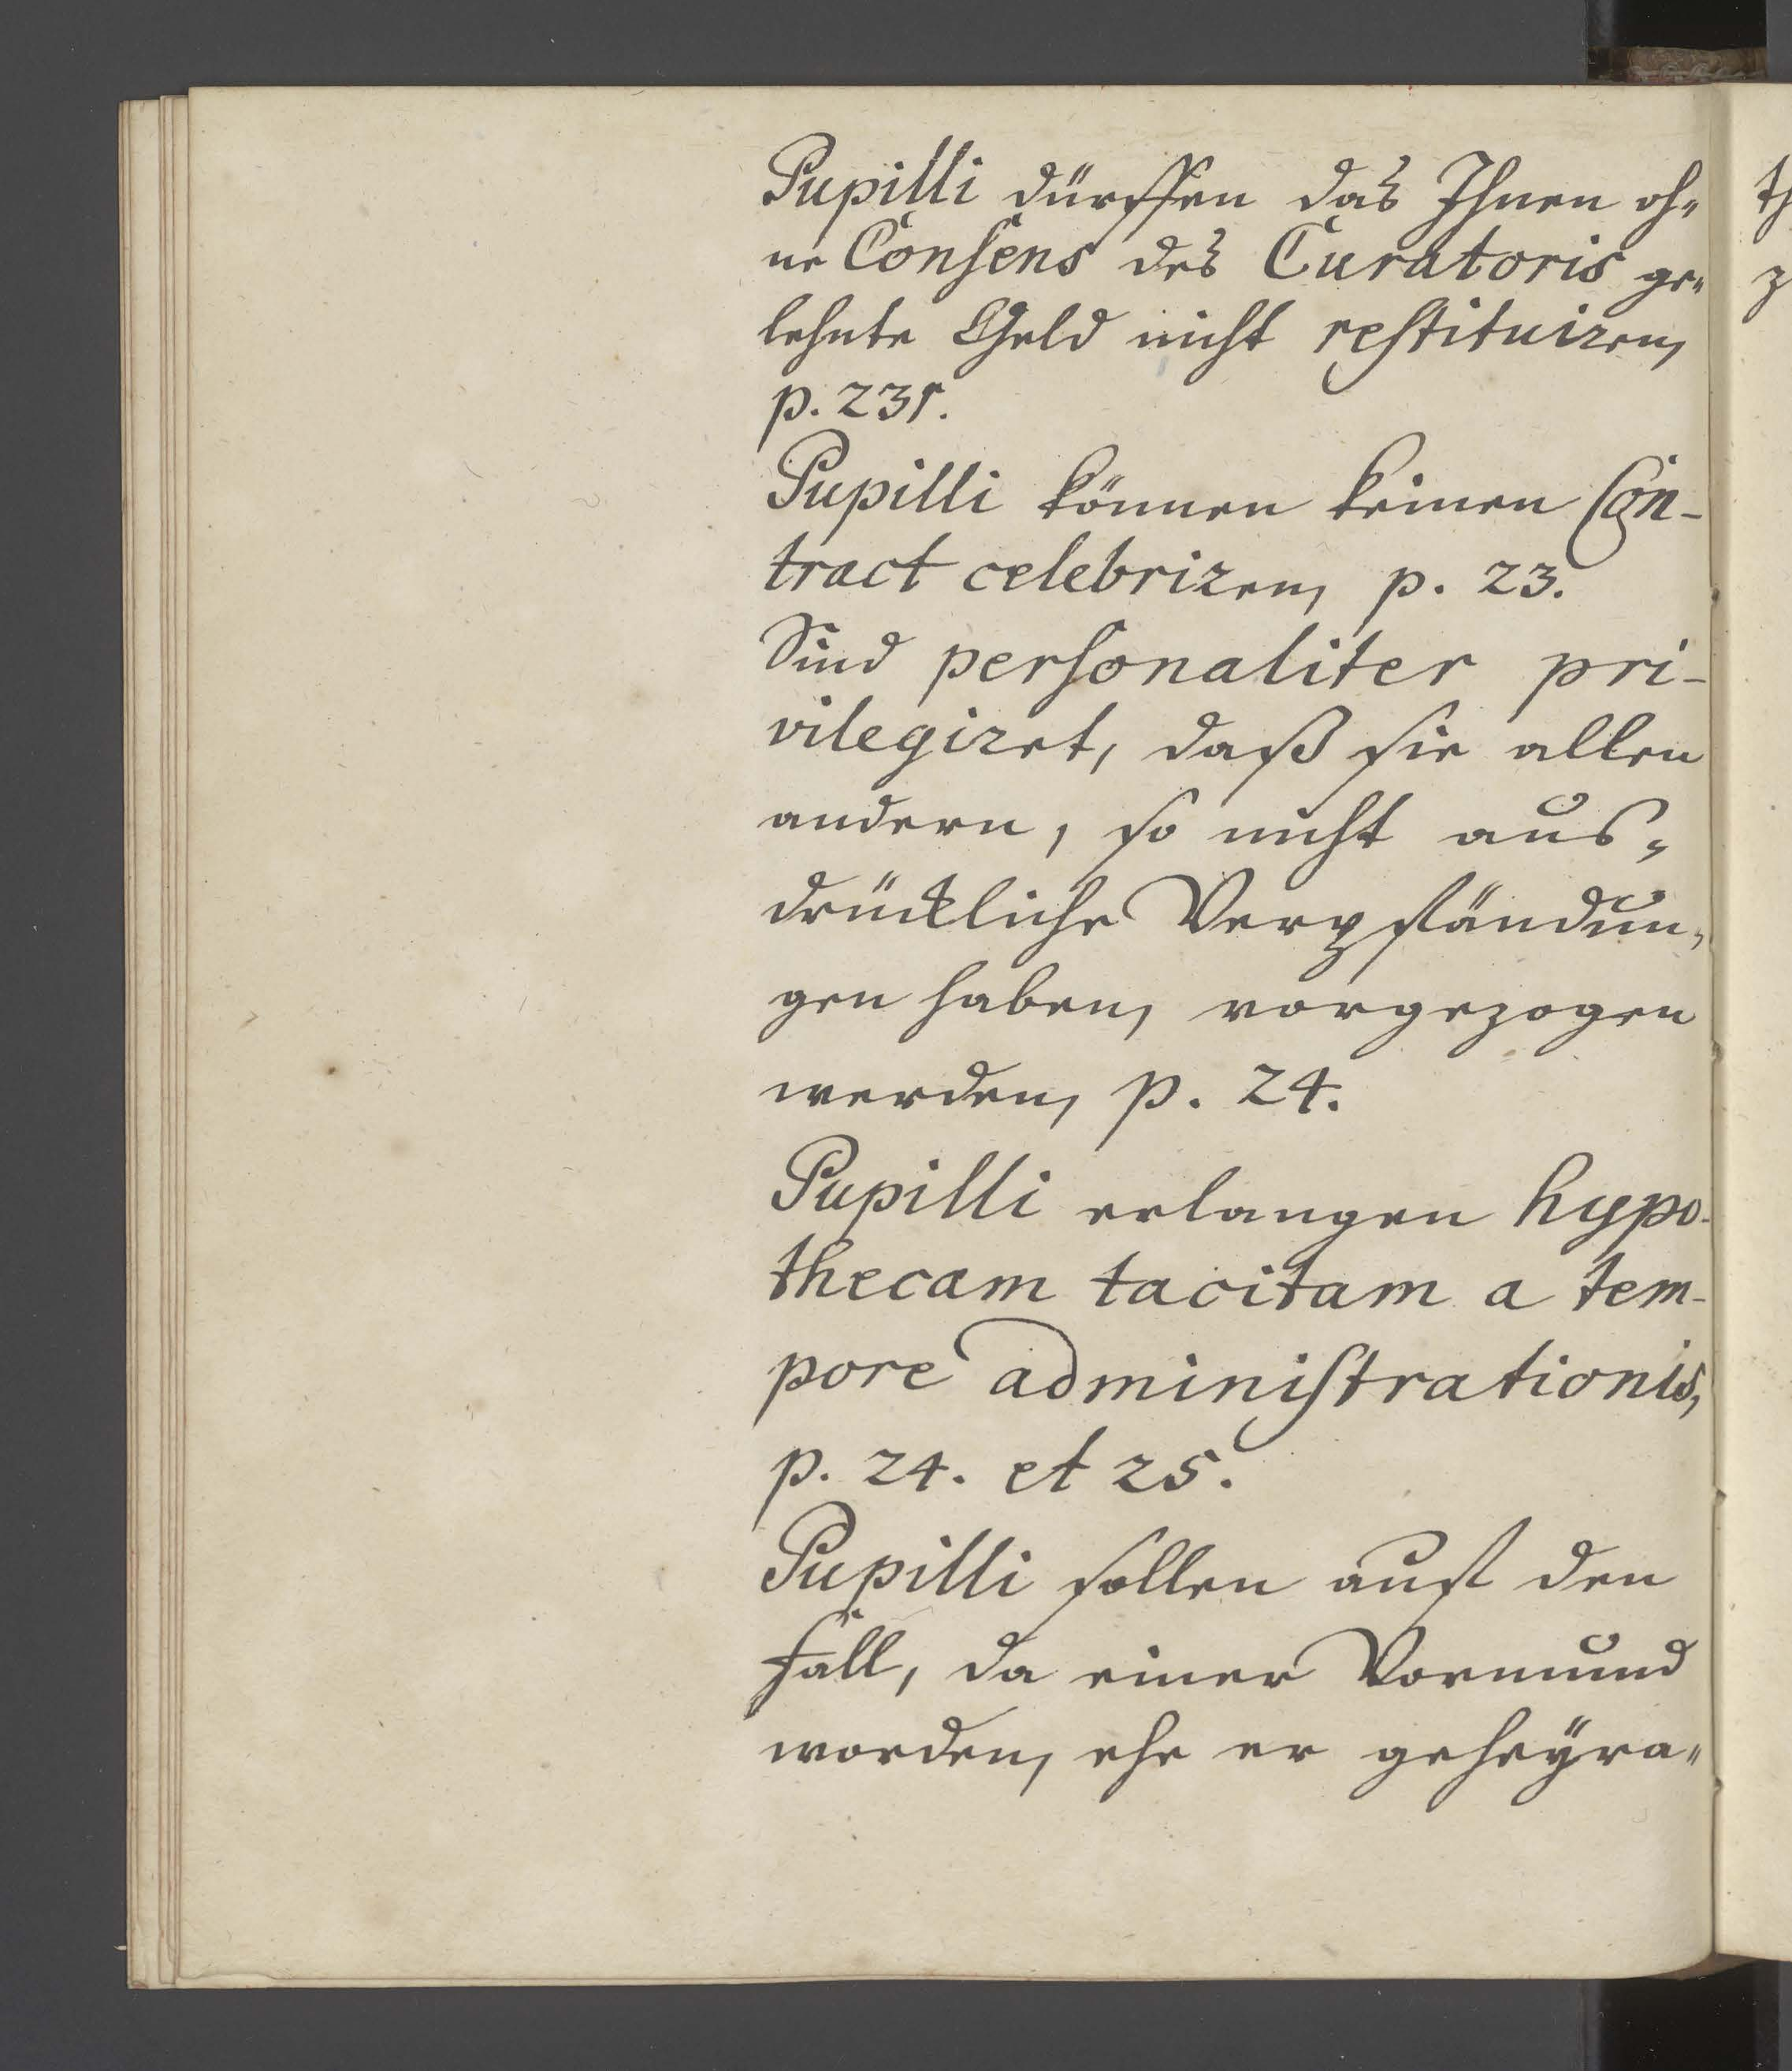 Pupilli dürffen das Ihnen oh-
ne Consens des Curatoris ge-
lehnte Geld nicht restituiren,
Pupilli können keinen Con-
tract celebriren, p. 23.
Sind personaliter pri-
vilegiret, daß sie allen
andern, so nicht aus-
drückliche Verpfändun-
gen haben, vorgezogen
werden, p. 24.
Pupilli erlangen hypo-
thecam tacitam a tem-
pore administrationis,
p. 24. et 25.
Pupilli sollen auf den
fall, da einer Vormund
worden, ehe er geheÿra-